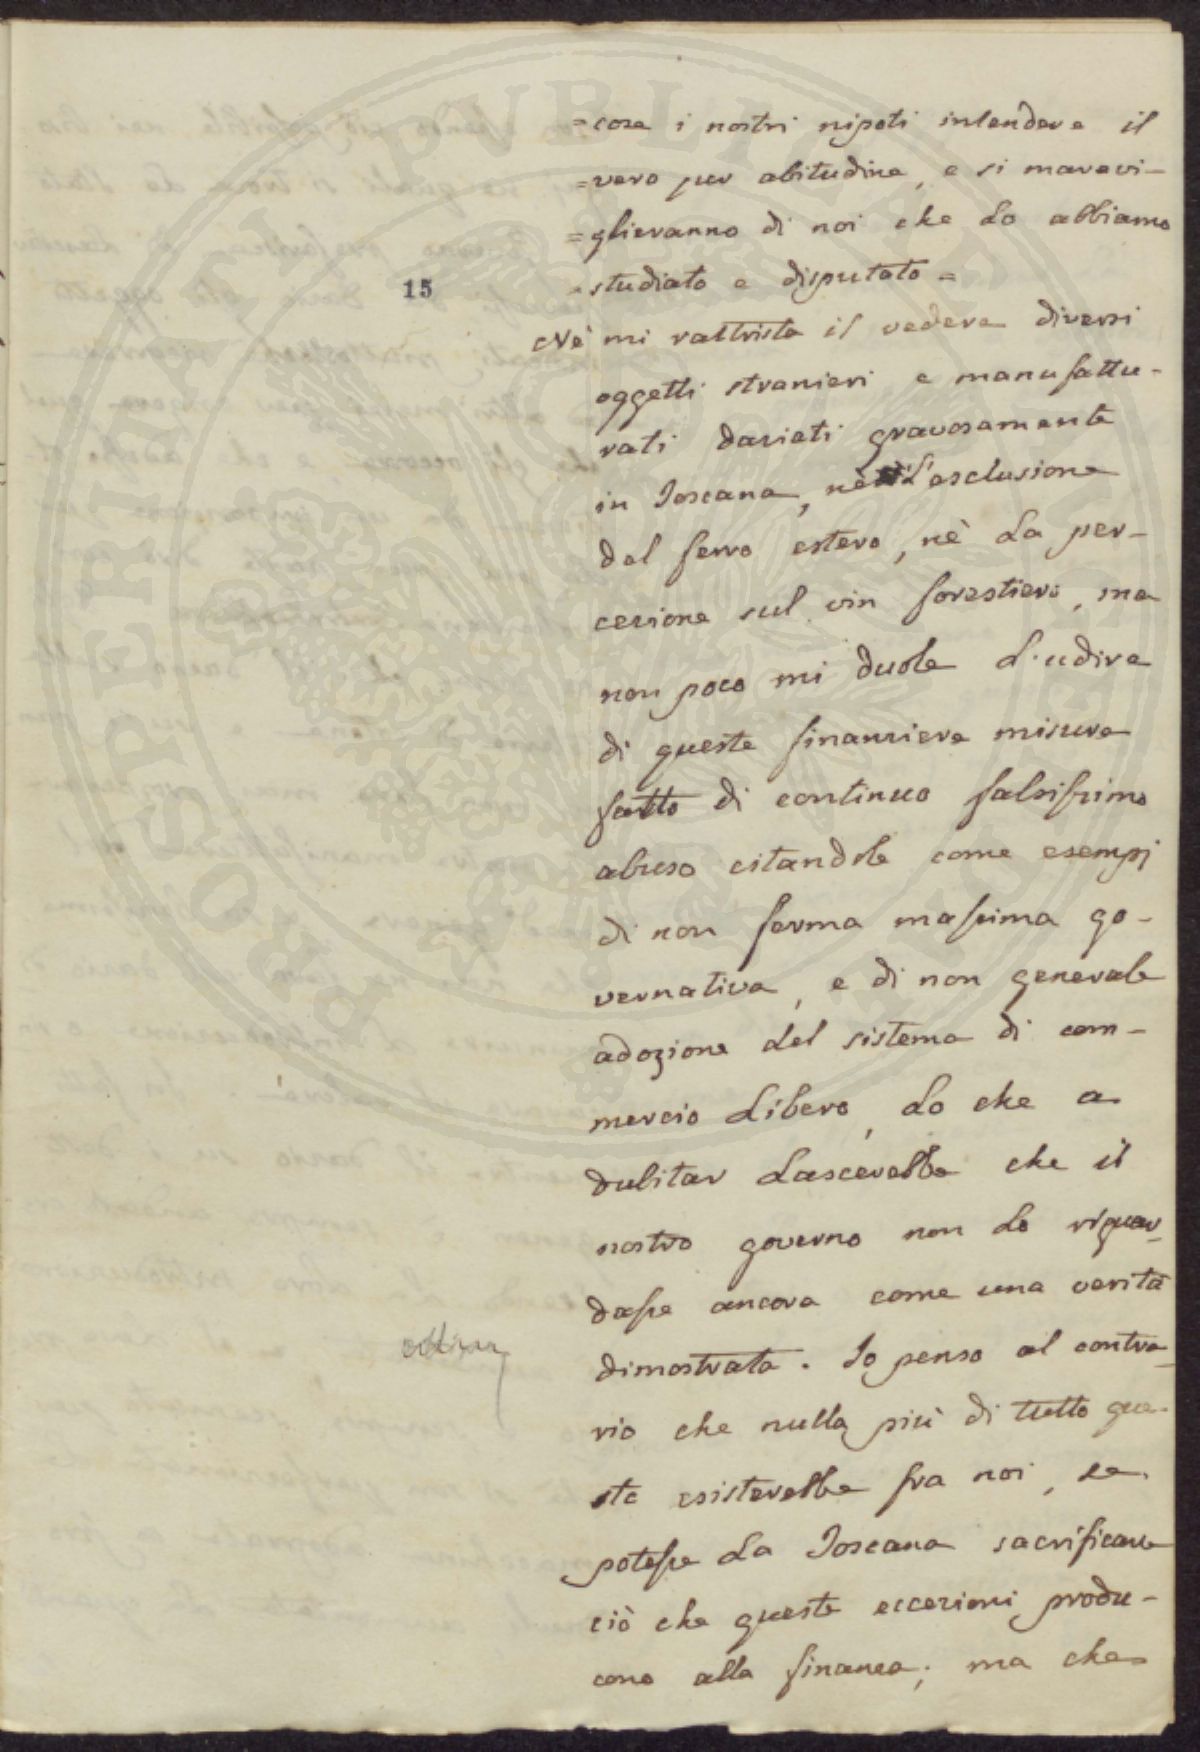 =cose i nostri nipoti intendere il
=vero per abitudine, e si maravi-
=glieranno di noi che lo abbiamo
15
=studiato e disputato=
Nè mi rattrista il vedere diversi
oggetti stranieri e manufattu-
rati daziati gravosamente
in Toscana, nè l'esclusione
del ferro estero, nè la per-
cezione sul vin forestiero, ma
non poco mi duole l'udire
di queste finanziere misure
fatto di continuo falsissimo
abuso citandole come esempj
di non ferma massima go-
vernativa, e di non generale
adozione del sistema di com-
mercio libero, lo che a
dubitar lascerebbe che il
nostro governo non lo riguar-
dasse ancora come una verità
dimostrata. Io penso al contra-
rio che nulla più di tutto que-
sto esisterebbe fra noi, se
potesse la Toscana sacrificare
ciò che queste eccezioni produ-
cono alla finanza; ma che
PROSPERITATI PVBLICAE